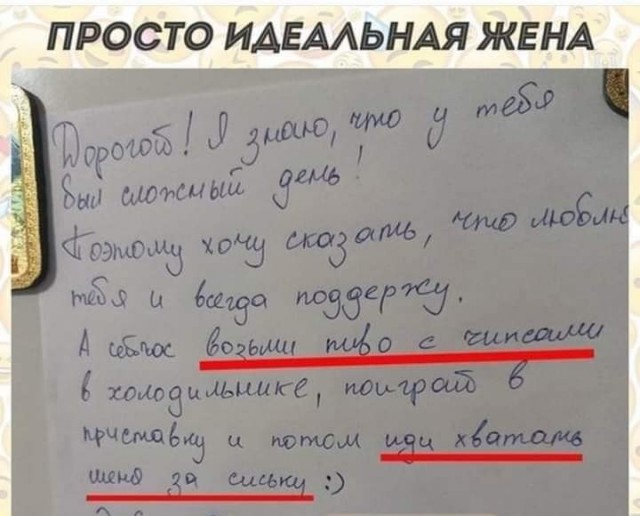 ПРОСТО ИДЕАЛЬНАЯ ЖЕНА
Дорогой! Я знаю, что у тебя
был сложный день!
Поэтому хочу сказать, что люблю
тебя и всегда поддержу.
А сейчас возьми пиво с чипсами
в холодильнике, поиграй в
приставку и потом иди хватать
меня за сиську :)